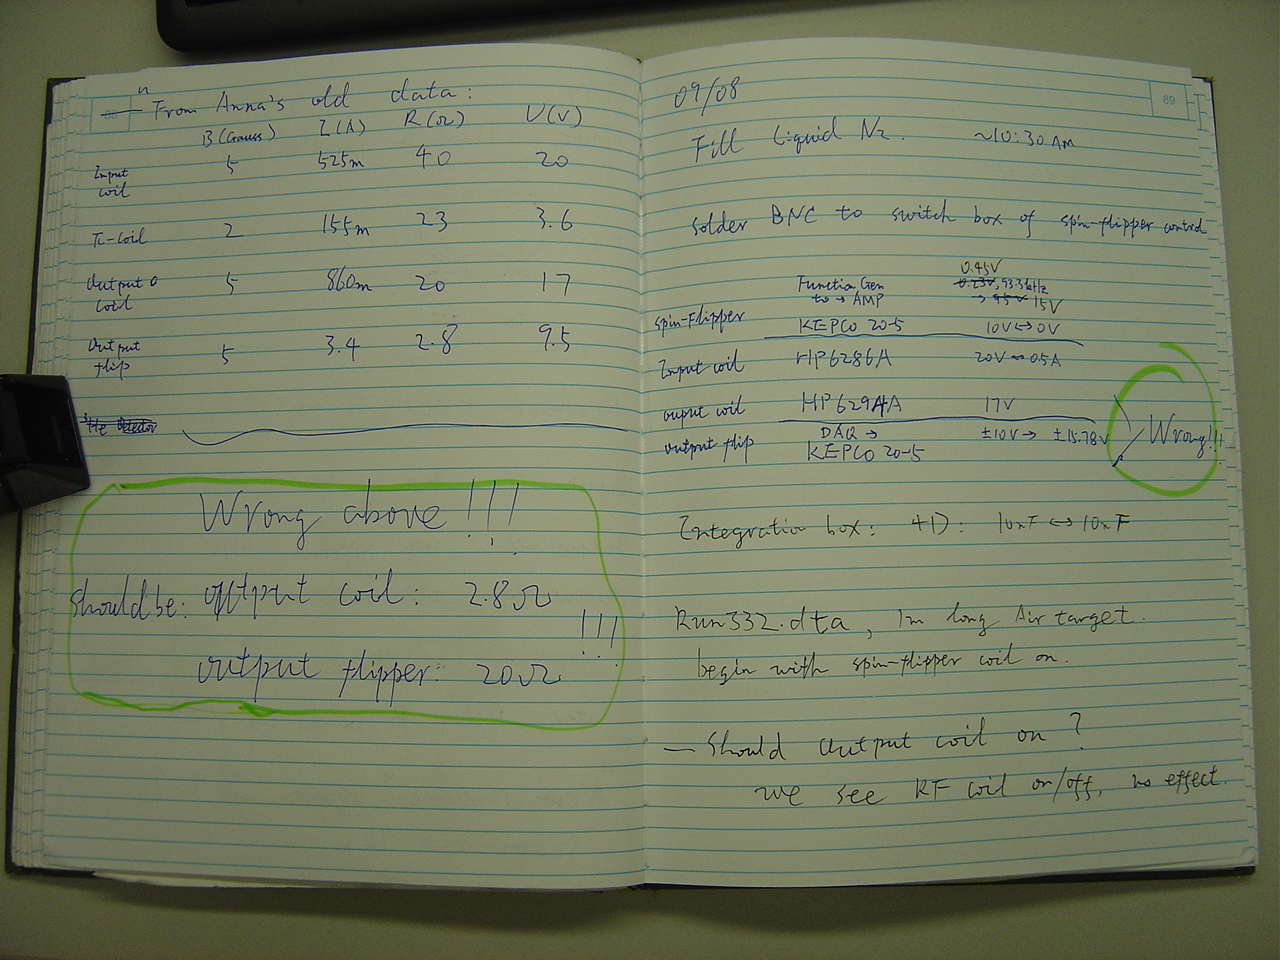 From Anna's old data:
B(Gauss) I(A) R(Ω) U(V)
Input coil 5 525m 40 20
Tc-coil 2 155m 23 3.6
Output coil 5 860m 20 17
Output flip 5 3.4 2.8 9.5
³He Detector
Wrong above!!!
should be: output coil: 2.8Ω
output flipper: 20Ω !!!
89
09/08
Fill Liquid N2. ~10:30 AM
solder BNC to switch box of spin-flipper control
0.45V
Function Gen 0.23V, 93.3kHz
to → AMP → 15V
spin-Flipper
KEPCO 20-5 10V↔0V
Input coil HP6286A 20V 0.5A
ouput coil HP6294A 17V
output flip DAQ → ±10V → ±15.78V
KEPCO 20-5
Wrong!!!
Integration box: 41D: 10nF ↔ 10nF
Run332.dta, 1m long Air target.
begin with spin-flipper coil on.
— Should output coil on?
we see RF coil on/off, no effect.